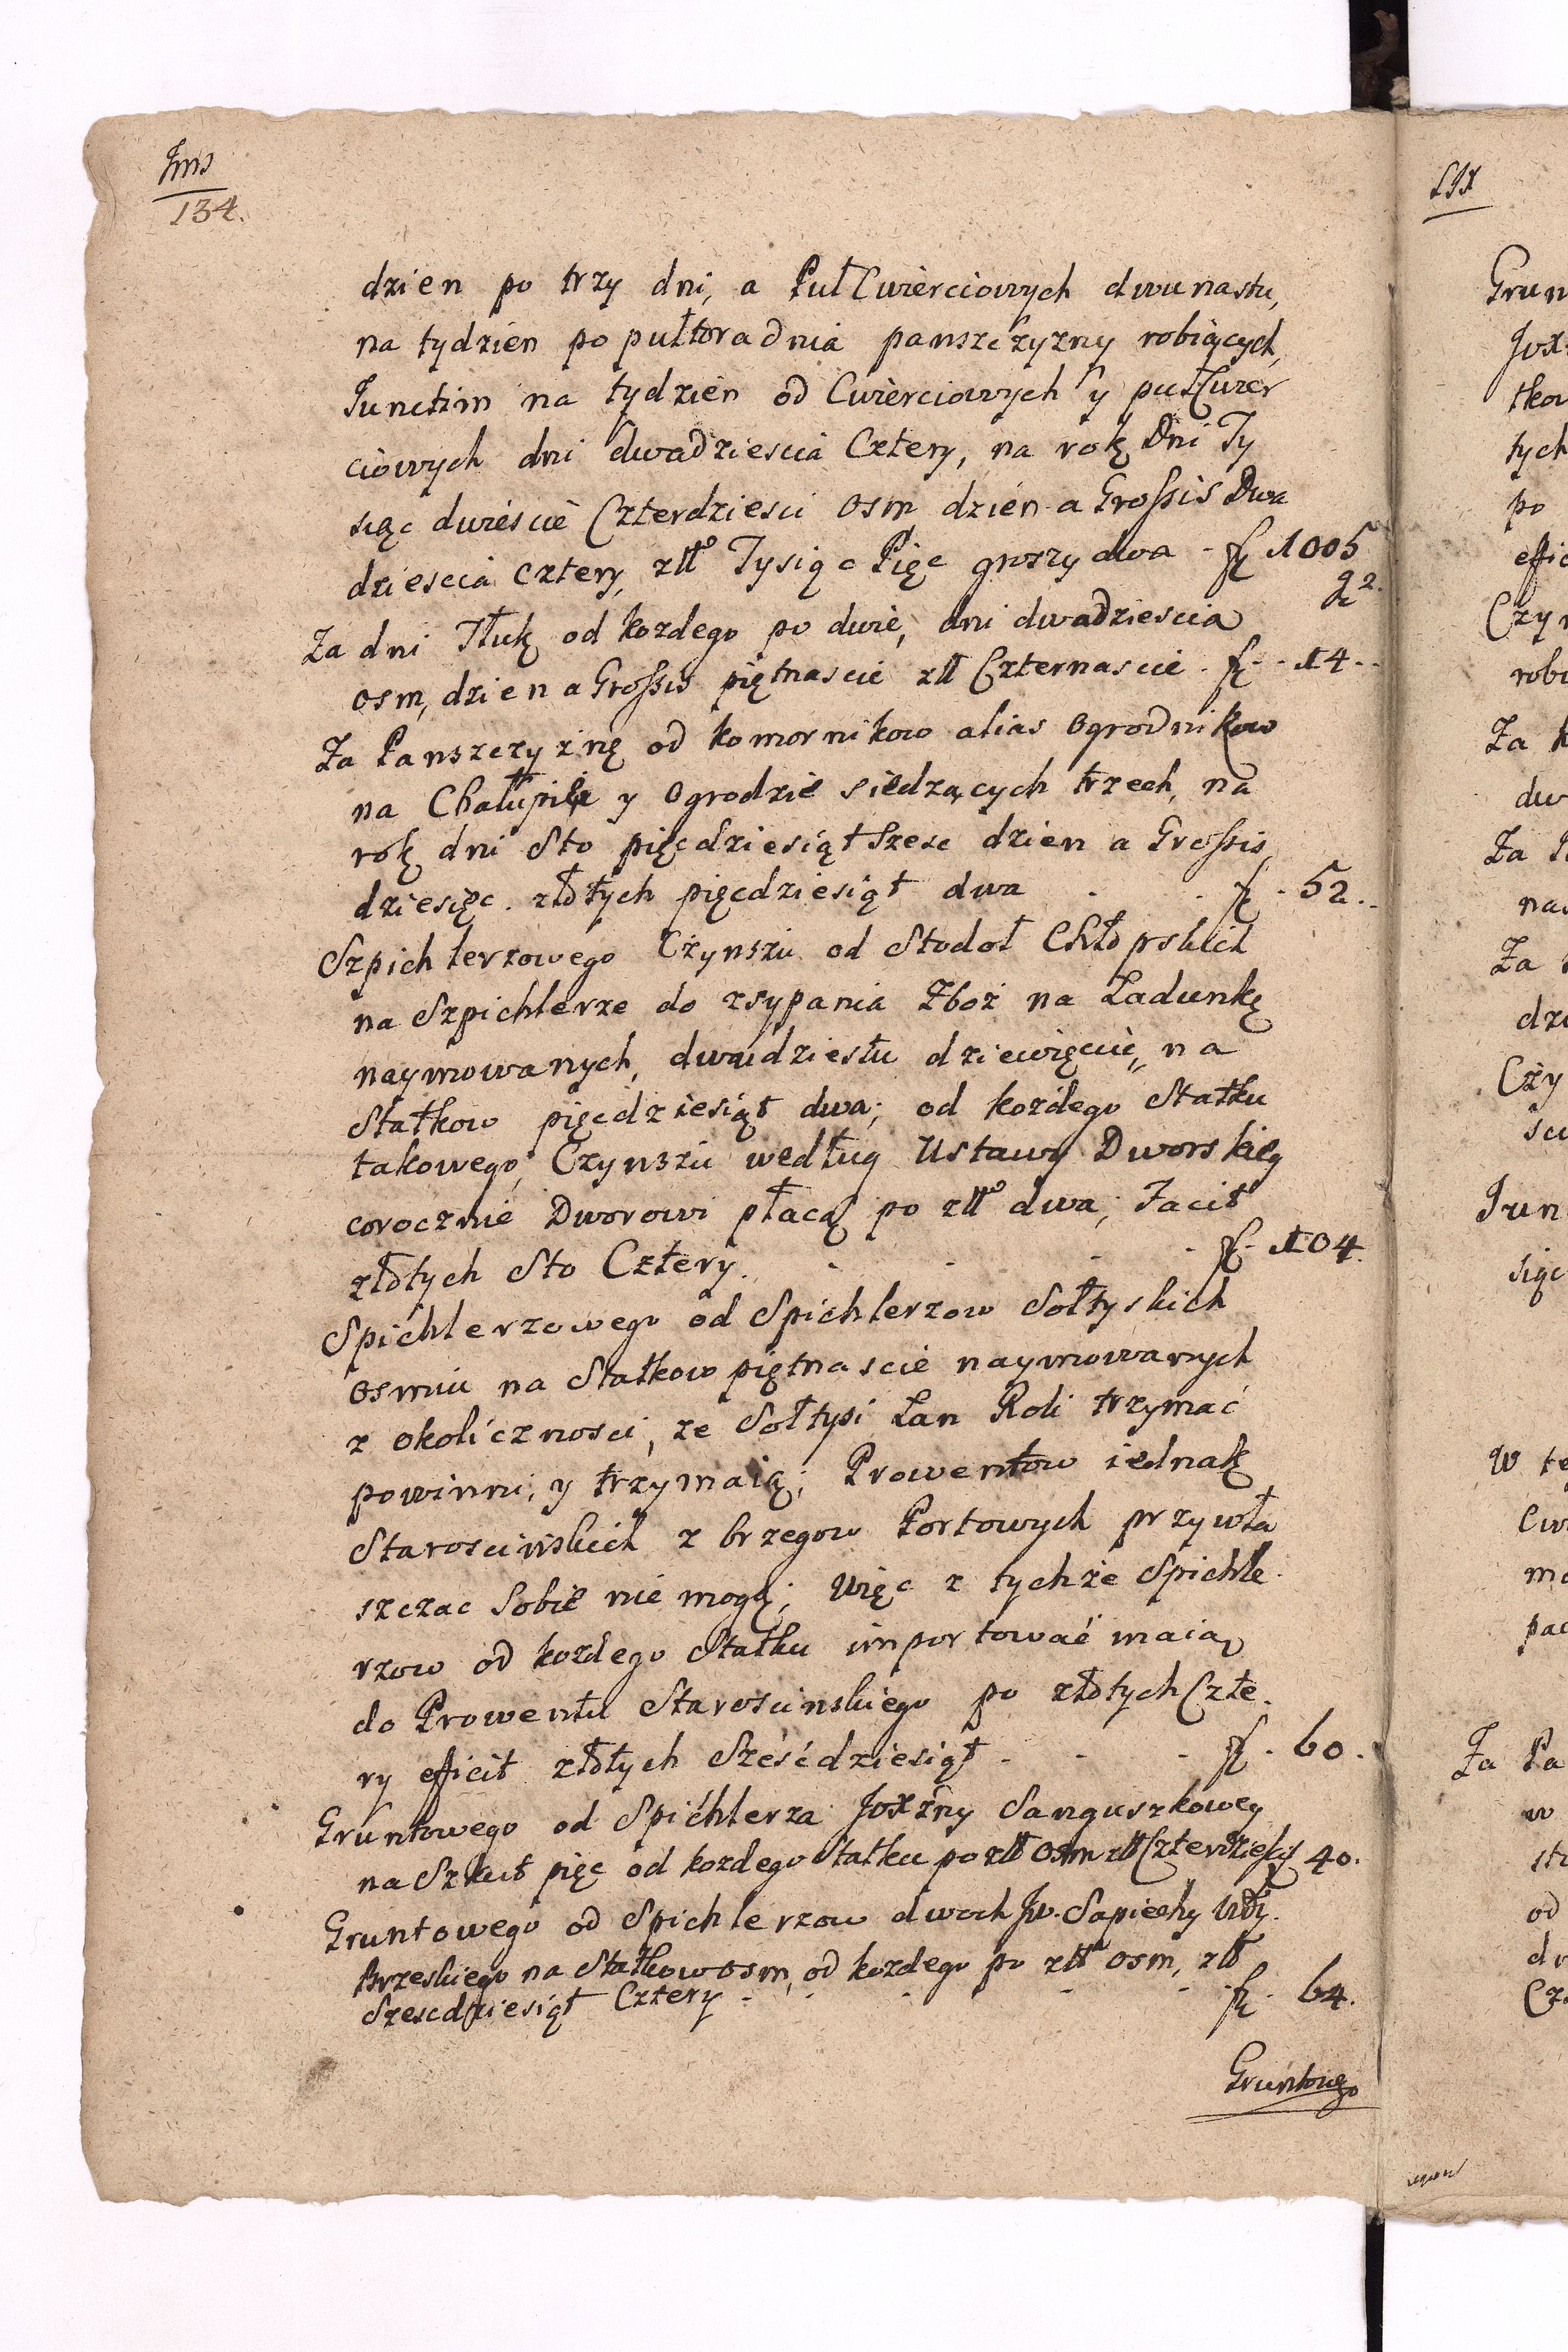 134.
dzien po trzy dni, a Puł Cwierciowych dwunastu,
na tydzien po pułtora dnia panszczyzny robiących,
Iunctim na tydzien od Cwierciowych y puł Cwier
ciowych dni dwadziescia Cztery, na rok Dni Ty
siąc dwieście Czterdziesci osm, dzien a Grossis Dwa
dziescia cztery, złł Tysiąc Pięc groszy dwa - fl 1005
g 2.
Za dni Tłuk od kozdego po dwie, dni dwadziescia
osm, dzien a Grossis piętnascie złł Czternascie - fl - 14 -
Za Panszczyznę od komornikow alias ogrodnikow
na Chałupie y ogrodzie siedzących trzech, na
rok dni Sto pięcdziesiąt Szesc dzien a Grossis,
dziesięc złotych pięcdziesiąt dwa - - fl - 52 -
Szpichlerzowego Czynszu od Stodoł Chłopskich
na Szpichlerze do zsypania Zboż na Ładunkę
naymowanych, dwudziestu dziewięciu, na
Statkow pięcdziesiąt dwa; od kozdego Statku
takowego, Czynszu według Ustawy Dworskiey
corocznie Dworowi płacą po złł dwa; Facit
złotych Sto Cztery. - - - - fl - 104.
Spichlerzowego od Spichlerzow Sołtyskich
osmiu na Statkow piętnascie naymowanych
z okolicznosci, ze Sołtysi Łan Roli trzymać
powinni, y trzymaią; Prowentow iednak
Staroscińskich z brzegow Portowych przywła
szczac Sobie nie mogą; więc z tychże Spichle-
rzow od kozdego Statku importować maią
do Prowentu Staroscinskiego po złotych Czte-
ry efficit złotych Sześćdziesiąt - - - fl - 60 -
Gruntowego od Spichlerza Joxżny Sanguszkowey
na Szkut pięc od kozdego Statku po złł osm złł Czterdziesci fl 40.
Gruntowego od Spichlerzow dwoch Jw. Sapiehy Wdy.
Brzeskiego na Statkow osm, od kozdego po złł osm, złł
Szescdziesiąt Cztery - - - - - fl - 64.
Gruntowego
LIX
Grun
Jox
tkow
tych
po
effic
Czyn
robi
Za
dw
Za
nas
Za
dzi
Czy
sci
Iun
siąc
W te
Cw
ma
pac
Za Pa
w
od
Cz